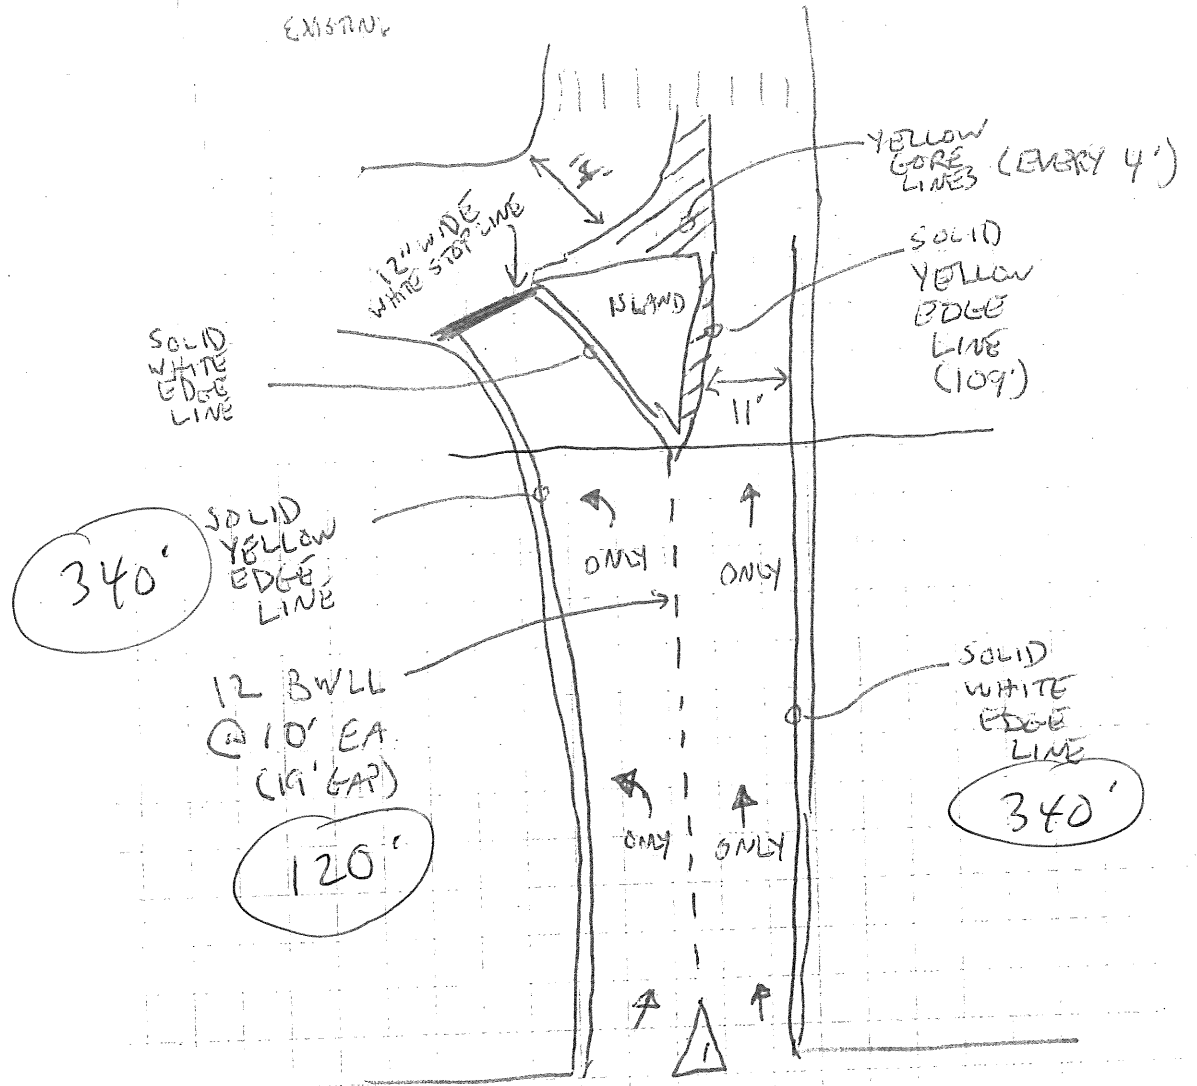 EXISTING
YELLOW
GORE
LINES (EVERY 4')
12" WIDE
WHITE STOP LINE
SOLID
YELLOW
EDGE
LINE
(109')
ISLAND
SOLID
WHITE
EDGE
LINE
11'
SOLID
YELLOW
EDGE
LINE
340'
ONLY
ONLY
12 BWLL
@ 10' EA
(19' GAP)
120'
SOLID
WHITE
EDGE
LINE
340'
ONLY
ONLY
1